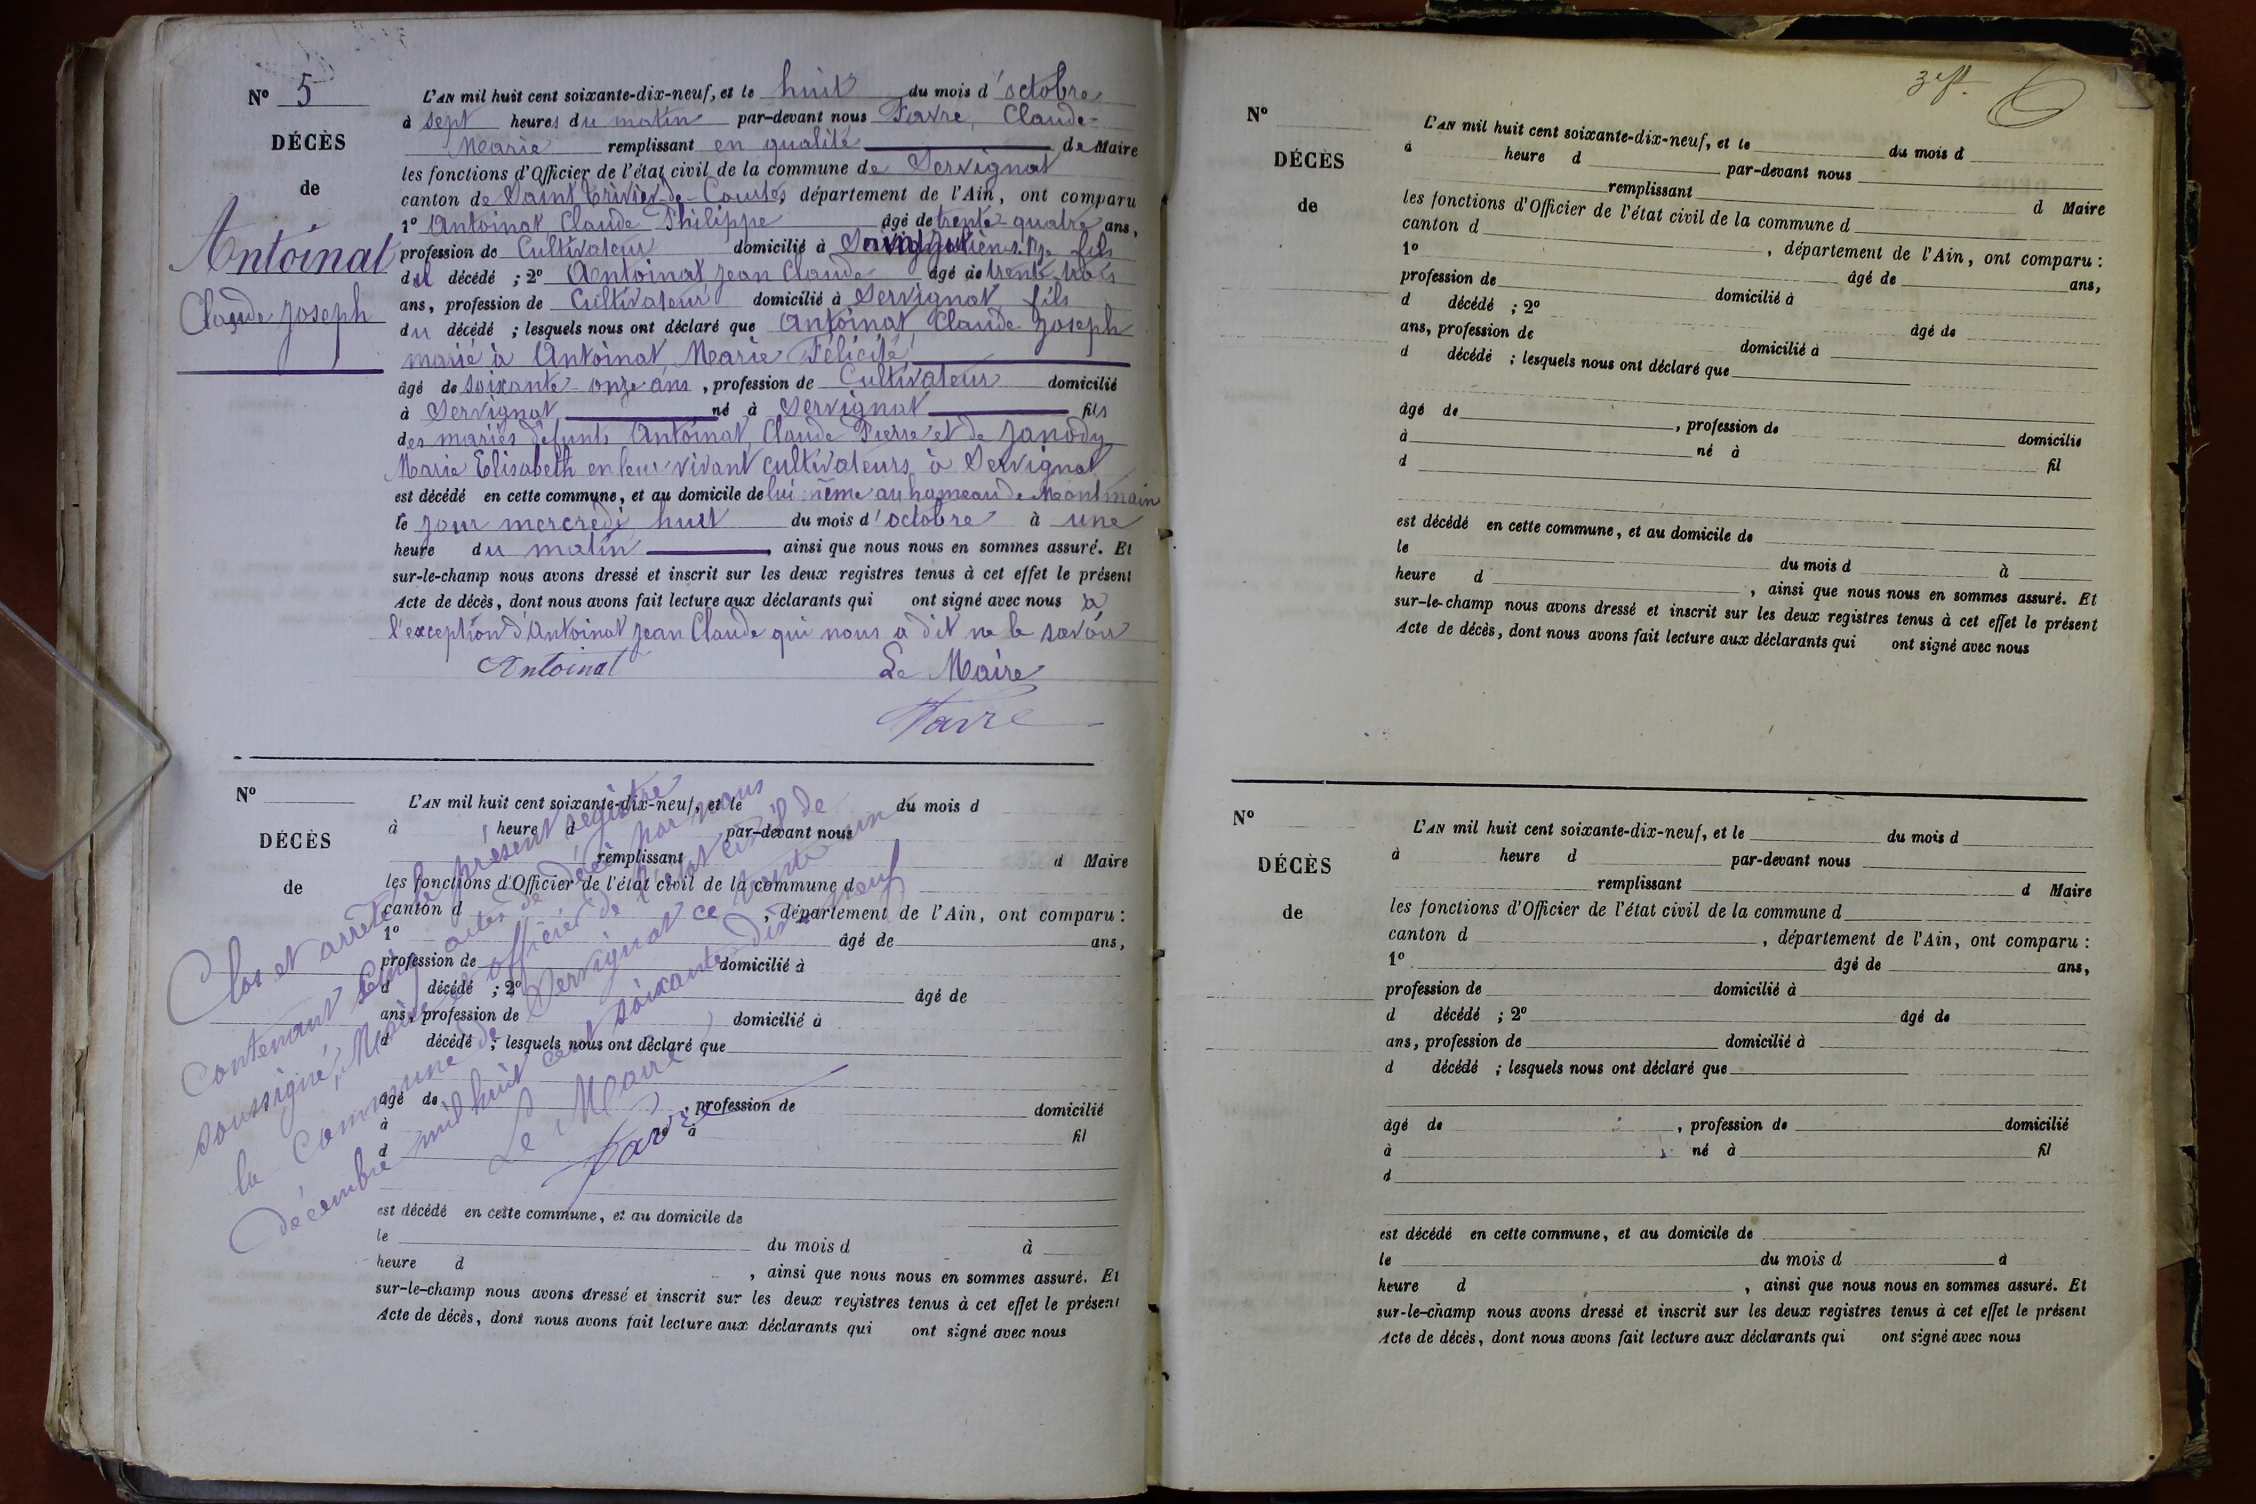 N° 5
DÉCÈS
de
Antoinat
Claude Joseph
L'AN mil huit cent soixante-dix-neuf, et le huit du mois d'octobre
à sept heures du matin par-devant nous Favre, Claude-
Marie remplissant en qualité de Maire
les fonctions d'Officier de l'état civil de la commune de Servignat
canton de Saint Trivier-de-Courtes, département de l'Ain, ont comparu
1° Antoinat Claude Philippe âgé de trente quatre ans,
profession de Cultivateur domicilié à fils
du décédé ; 2° Antoinat Jean Claude âgé de trente trois
ans, profession de Cultivateur domicilié à Servignat, fils
du décédé ; lesquels nous ont déclaré que Antoinat Claude Joseph
marié à Antoinat Marie Félicité
âgé de soixante onze ans, profession de Cultivateur domicilié
à Servignat né à Servignat fils
des mariés défunts Antoinat, Claude Pierre et de Janody
Marie Elisabeth en leur vivant cultivateurs à Servignat
est décédé en cette commune, et au domicile de lui même au hameau de Montmain
le jour mercredi huit du mois d'octobre à une
heure du matin, ainsi que nous nous en sommes assuré. Et
sur-le-champ nous avons dressé et inscrit sur les deux registres tenus à cet effet le présent
Acte de décès, dont nous avons fait lecture aux déclarants qui ont signé avec nous à
l'exception d'Antoinat Jean Claude qui nous a dit ne le savoir
Antoinat Le Maire
Favre
N°
DÉCÈS
de
L'AN mil huit cent soixante-dix-neuf, et le du mois d
à heure d par-devant nous
remplissant d Maire
les fonctions d'Officier de l'état civil de la commune d
canton d , département de l'Ain, ont comparu :
1° âgé de ans,
profession de domicilié à
d décédé ; 2° âgé de
ans, profession de domicilié à
d décédé ; lesquels nous ont déclaré que
âgé de , profession de domicilié
à né à fil
d
est décédé en cette commune, et au domicile de
le du mois d à
heure d , ainsi que nous nous en sommes assuré. Et
sur-le-champ nous avons dressé et inscrit sur les deux registres tenus à cet effet le présent
Acte de décès, dont nous avons fait lecture aux déclarants qui ont signé avec nous
Clos et arrêté le présent registre
Contenant cinq actes de décès par nous
soussigné, Maire et officier de l'état civil de
la Commune de Servignat ce trente un
décembre mil huit cent soixante dix neuf
Le Maire
Favre
N°
DÉCÈS
de
L'AN mil huit cent soixante-dix-neuf, et le du mois d
à heure d par-devant nous
remplissant d Maire
les fonctions d'Officier de l'état civil de la commune d
canton d , département de l'Ain, ont comparu :
1° âgé de ans,
profession de domicilié à
d décédé ; 2° âgé de
ans, profession de domicilié à
d décédé ; lesquels nous ont déclaré que
âgé de , profession de domicilié
à né à fil
d
est décédé en cette commune, et au domicile de
le du mois d à
heure d , ainsi que nous nous en sommes assuré. Et
sur-le-champ nous avons dressé et inscrit sur les deux registres tenus à cet effet le présent
Acte de décès, dont nous avons fait lecture aux déclarants qui ont signé avec nous
N°
DÉCÈS
de
L'AN mil huit cent soixante-dix-neuf, et le du mois d
à heure d par-devant nous
remplissant d Maire
les fonctions d'Officier de l'état civil de la commune d
canton d , département de l'Ain, ont comparu :
1° âgé de ans,
profession de domicilié à
d décédé ; 2° âgé de
ans, profession de domicilié à
d décédé ; lesquels nous ont déclaré que
âgé de , profession de domicilié
à né à fil
d
est décédé en cette commune, et au domicile de
le du mois d à
heure d , ainsi que nous nous en sommes assuré. Et
sur-le-champ nous avons dressé et inscrit sur les deux registres tenus à cet effet le présent
Acte de décès, dont nous avons fait lecture aux déclarants qui ont signé avec nous